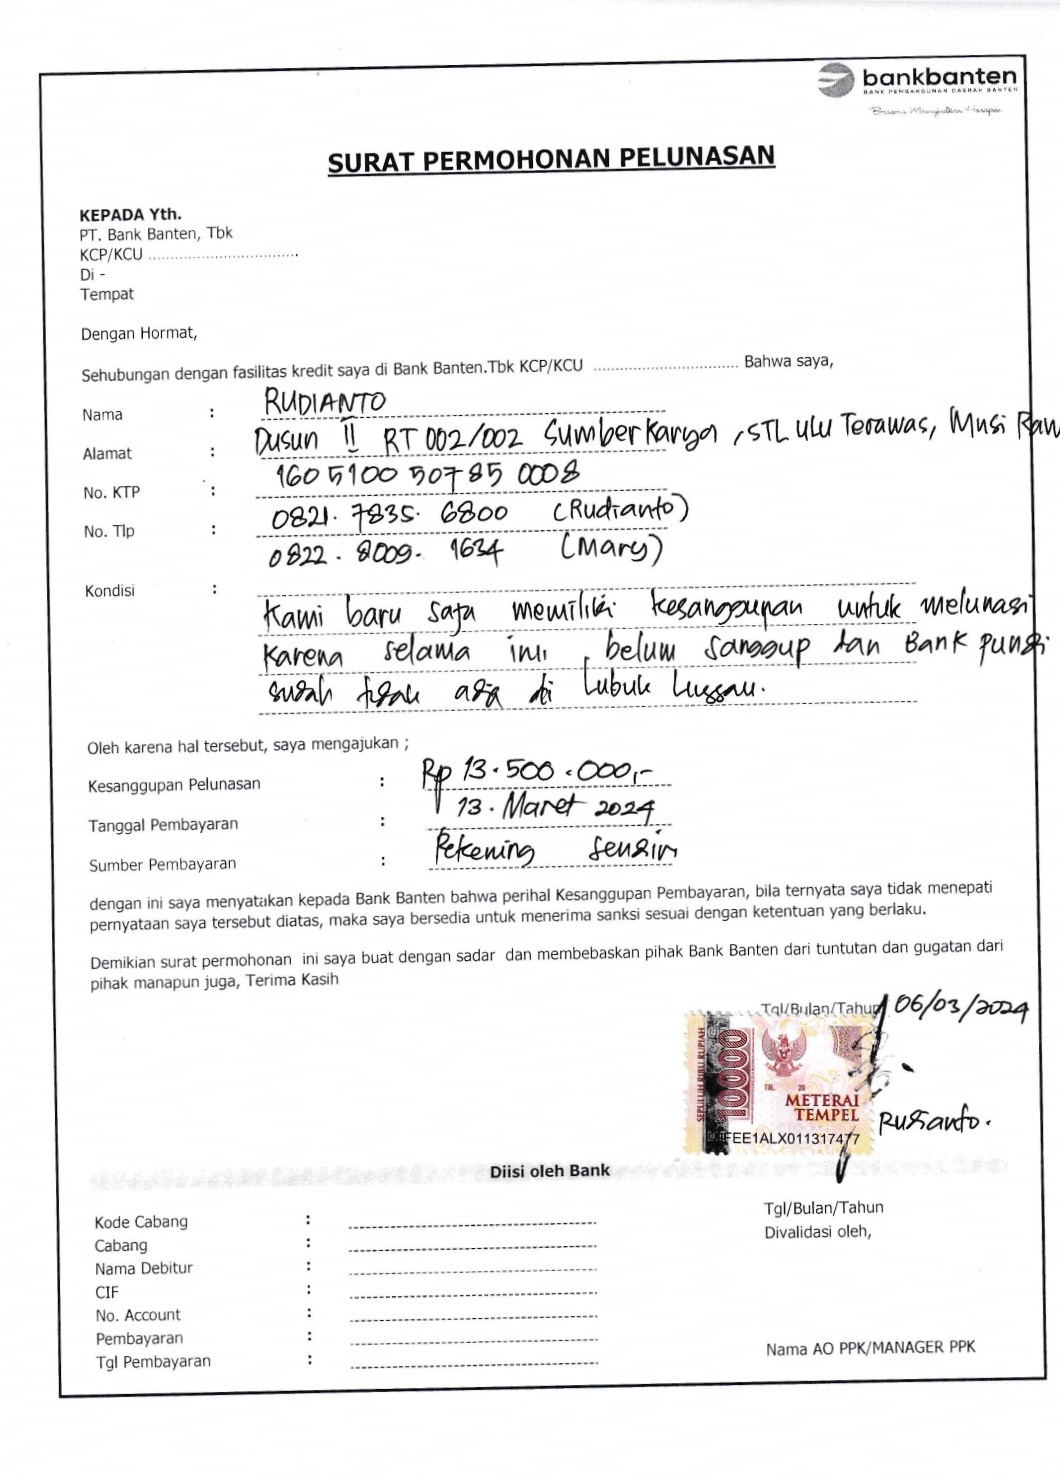 bankbanten
BANK PEMBANGUNAN DAERAH BANTEN
SURAT PERMOHONAN PELUNASAN
KEPADA Yth.
PT. Bank Banten, Tbk
KCP/KCU ..................................
Di -
Tempat
Dengan Hormat,
Sehubungan dengan fasilitas kredit saya di Bank Banten.Tbk KCP/KCU ................................ Bahwa saya,
Nama : RUDIANTO
Alamat : Dusun II RT 002/002 Sumber Karya, STL Ulu Terawas, Musi Raw
No. KTP : 1605100507850008
No. Tlp : 0821.7835.6800 (Rudianto)
0822.8009.1634 (Mary)
Kondisi :
Kami baru saja memiliki kesanggupan untuk melunasi
Karena selama ini, belum sanggup dan Bank pungi
sudah tidak ada di Lubuk Linggau.
Oleh karena hal tersebut, saya mengajukan ;
Kesanggupan Pelunasan : Rp 13.500.000,-
Tanggal Pembayaran : 13. Maret 2024
Sumber Pembayaran : Rekening Sendiri
dengan ini saya menyatakan kepada Bank Banten bahwa perihal Kesanggupan Pembayaran, bila ternyata saya tidak menepati
pernyataan saya tersebut diatas, maka saya bersedia untuk menerima sanksi sesuai dengan ketentuan yang berlaku.
Demikian surat permohonan ini saya buat dengan sadar dan membebaskan pihak Bank Banten dari tuntutan dan gugatan dari
pihak manapun juga, Terima Kasih
Tgl/Bulan/Tahun 06/03/2024
SEPULUH RIBU RUPIAH
10000
TGL. 20
METERAI
TEMPEL
FEE1ALX011317477
Rudianto.
Diisi oleh Bank
Kode Cabang :
Cabang :
Nama Debitur :
CIF :
No. Account :
Pembayaran :
Tgl Pembayaran :
Tgl/Bulan/Tahun
Divalidasi oleh,
Nama AO PPK/MANAGER PPK